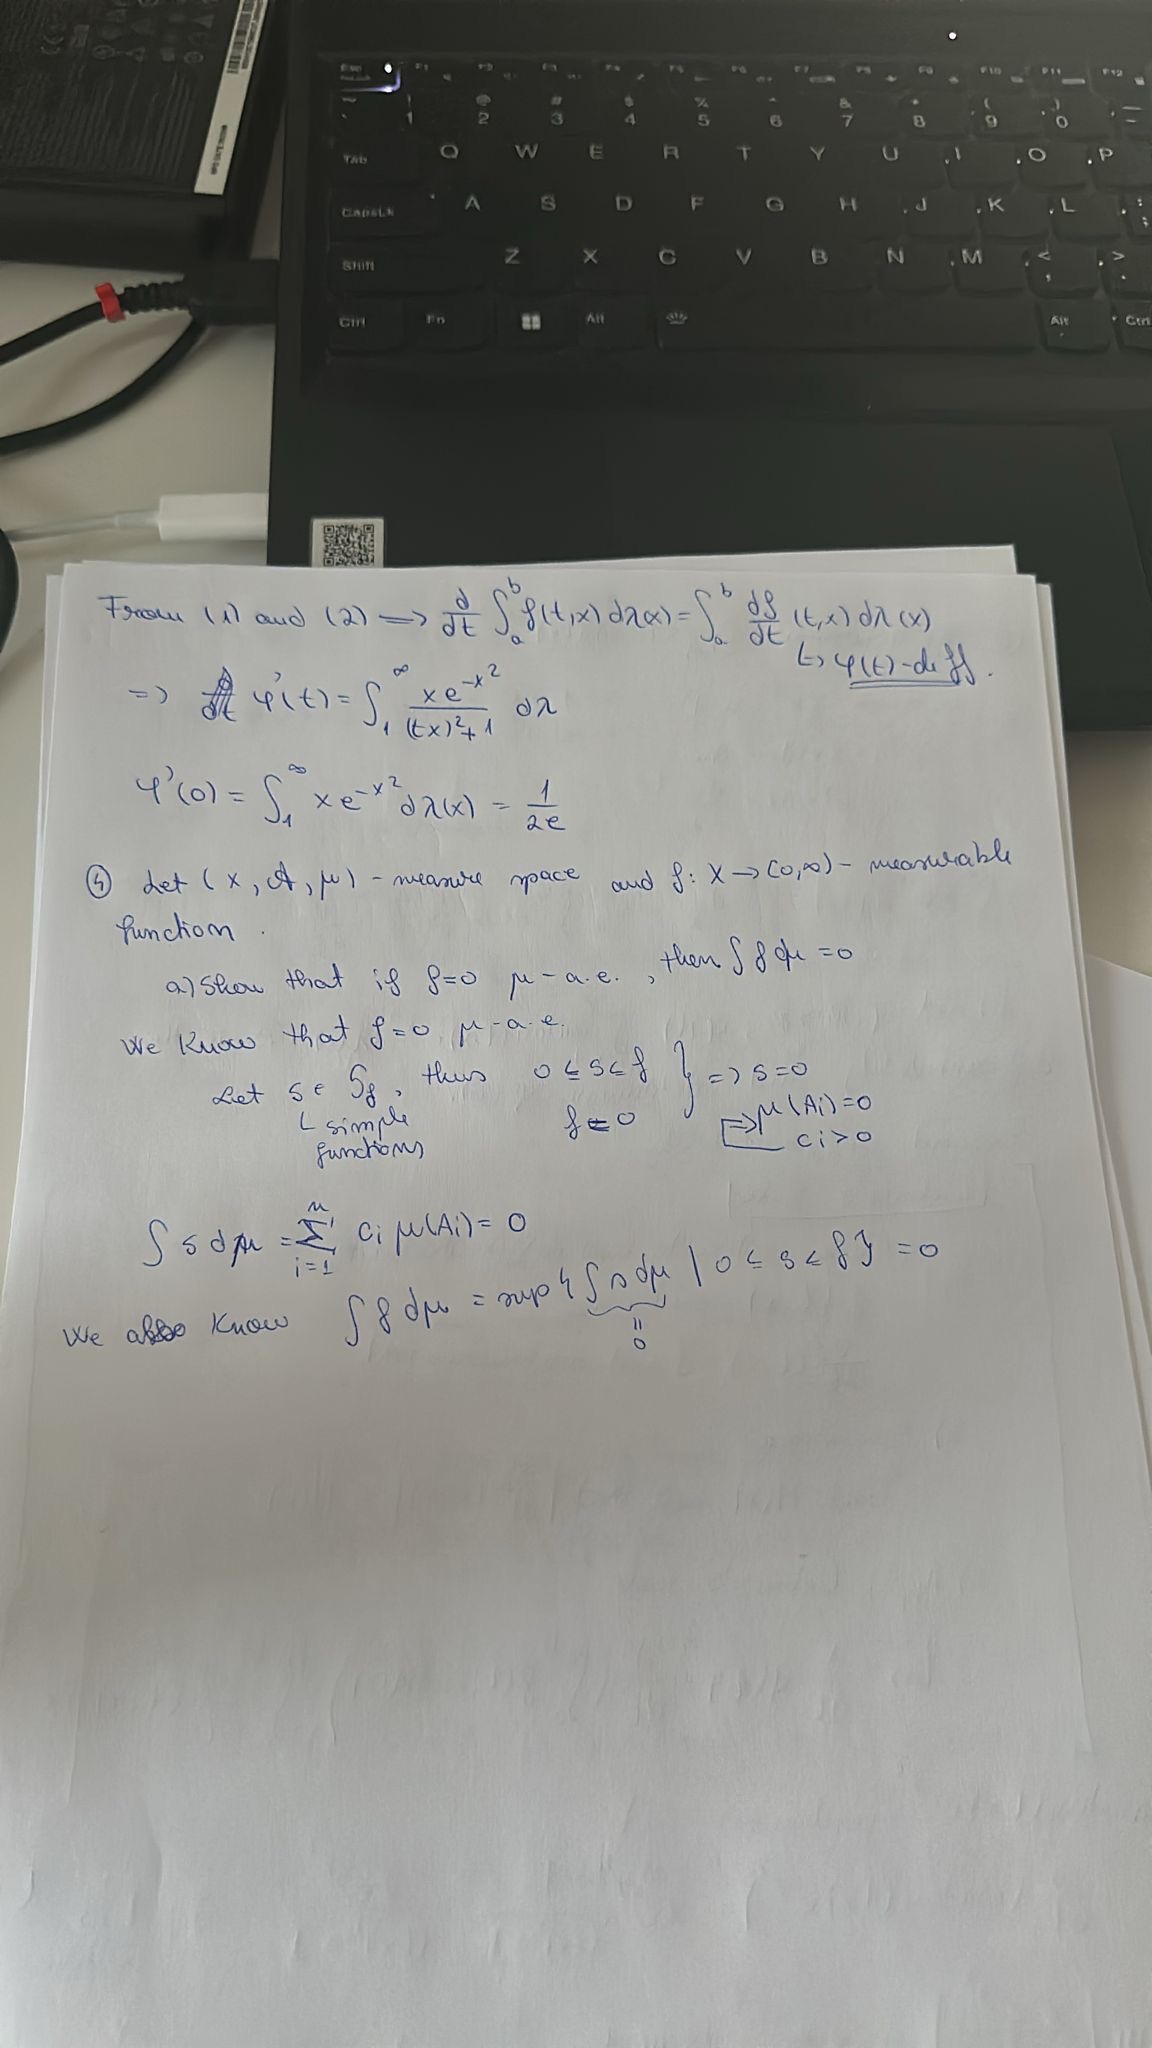 Esc F1 F2 F3 F4 F5 F6 F7 F8 F9 F10 F11 F12
~ ! @ # $ % ^ & * ( ) _
` 1 2 3 4 5 6 7 8 9 0 -
Tab Q W E R T Y U I O P
CapsLk A S D F G H J K L : ;
Shift Z X C V B N M < , > .
Ctrl Fn Alt Alt Ctrl
From (1) and (2) => d/dt ∫_a^b f(t,x) dλ(x) = ∫_a^b df/dt (t,x) dλ(x)
↳ φ(t) - diff.
=> φ'(t) = ∫_1^∞ xe^{-x^2}/((tx)^2+1) dλ
φ'(0) = ∫_1^∞ xe^{-x^2} dλ(x) = 1/2e
④ Let (X, A, μ) - measure space and f: X → [0,∞) - measurable
function.
a) Show that if f=0 μ-a.e., then ∫ f dμ = 0
We know that f=0 μ-a.e.
Let s ∈ S_f, thus 0 ≤ s ≤ f } => s=0
└ simple functions f=0 => μ(Ai)=0
ci>0
∫ s dμ = Σ_{i=1}^n ci μ(Ai) = 0
We also know ∫ f dμ = sup{∫ s dμ | 0 ≤ s ≤ f} = 0
||
0